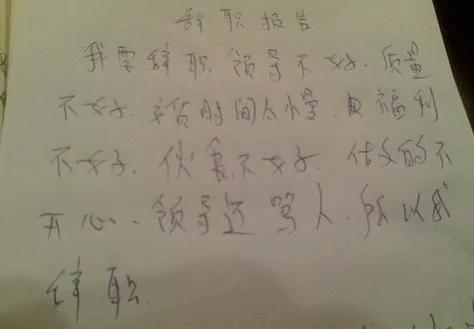 辞职报告.
我要辞职. 领导不好. 质量
不好. 货时间太慢. 福利
不好. 伙食不好. 做的不
开心. 领导还骂人. 所以我
辞职.